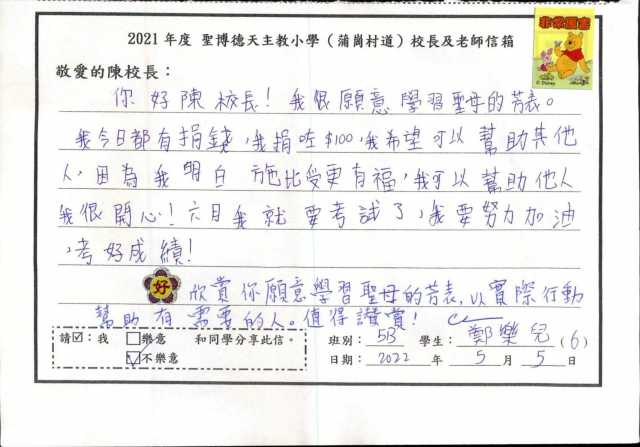 2021 年度 聖博德天主教小學（蒲崗村道）校長及老師信箱
非常厲害
© Disney
敬愛的陳校長：
你好陳校長！我很願意學習聖母的芳表。
我今日都有捐錢，我捐咗$100，我希望可以幫助其他
人，因為我明白施比受更有福，我可以幫助他人
我很開心！六月我就要考試了，我要努力加油
，考好成績！
好 欣賞你願意學習聖母的芳表，以實際行動
幫助有需要的人。值得讚賞！
請☑：我 □樂意 和同學分享此信。
☑不樂意
班別：5B 學生：鄭樂兒 (6)
日期：2022 年 5 月 5 日